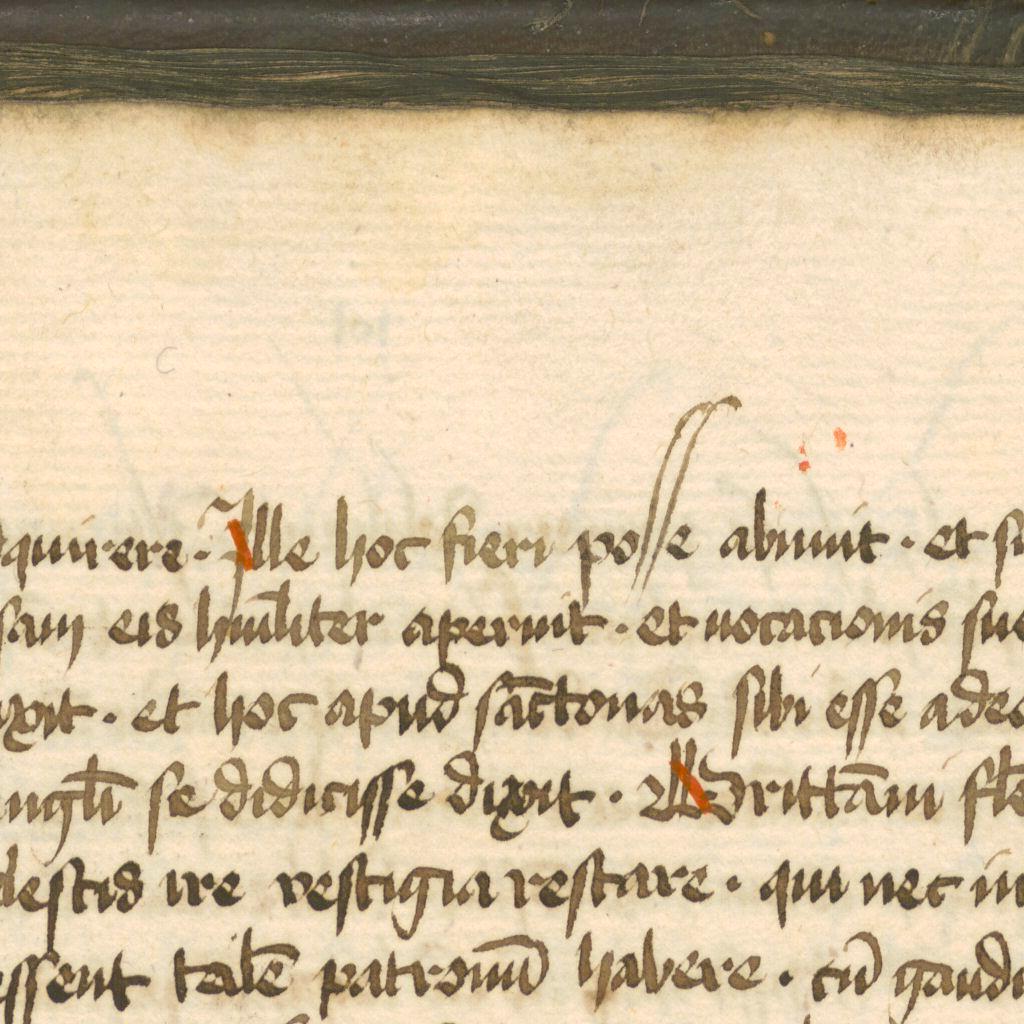 quirere · Ille hoc fieri posse abnuit · et su
sam eis humlit̃er aperuit · et uocacionis sue
ixit · et hoc apud sāctonas sibi esse adeo
angłi se didicisse dixit · Brittāni fle
lestis ire vestigia restare · qui nec in
essent talē patronū habere · cū gaudi